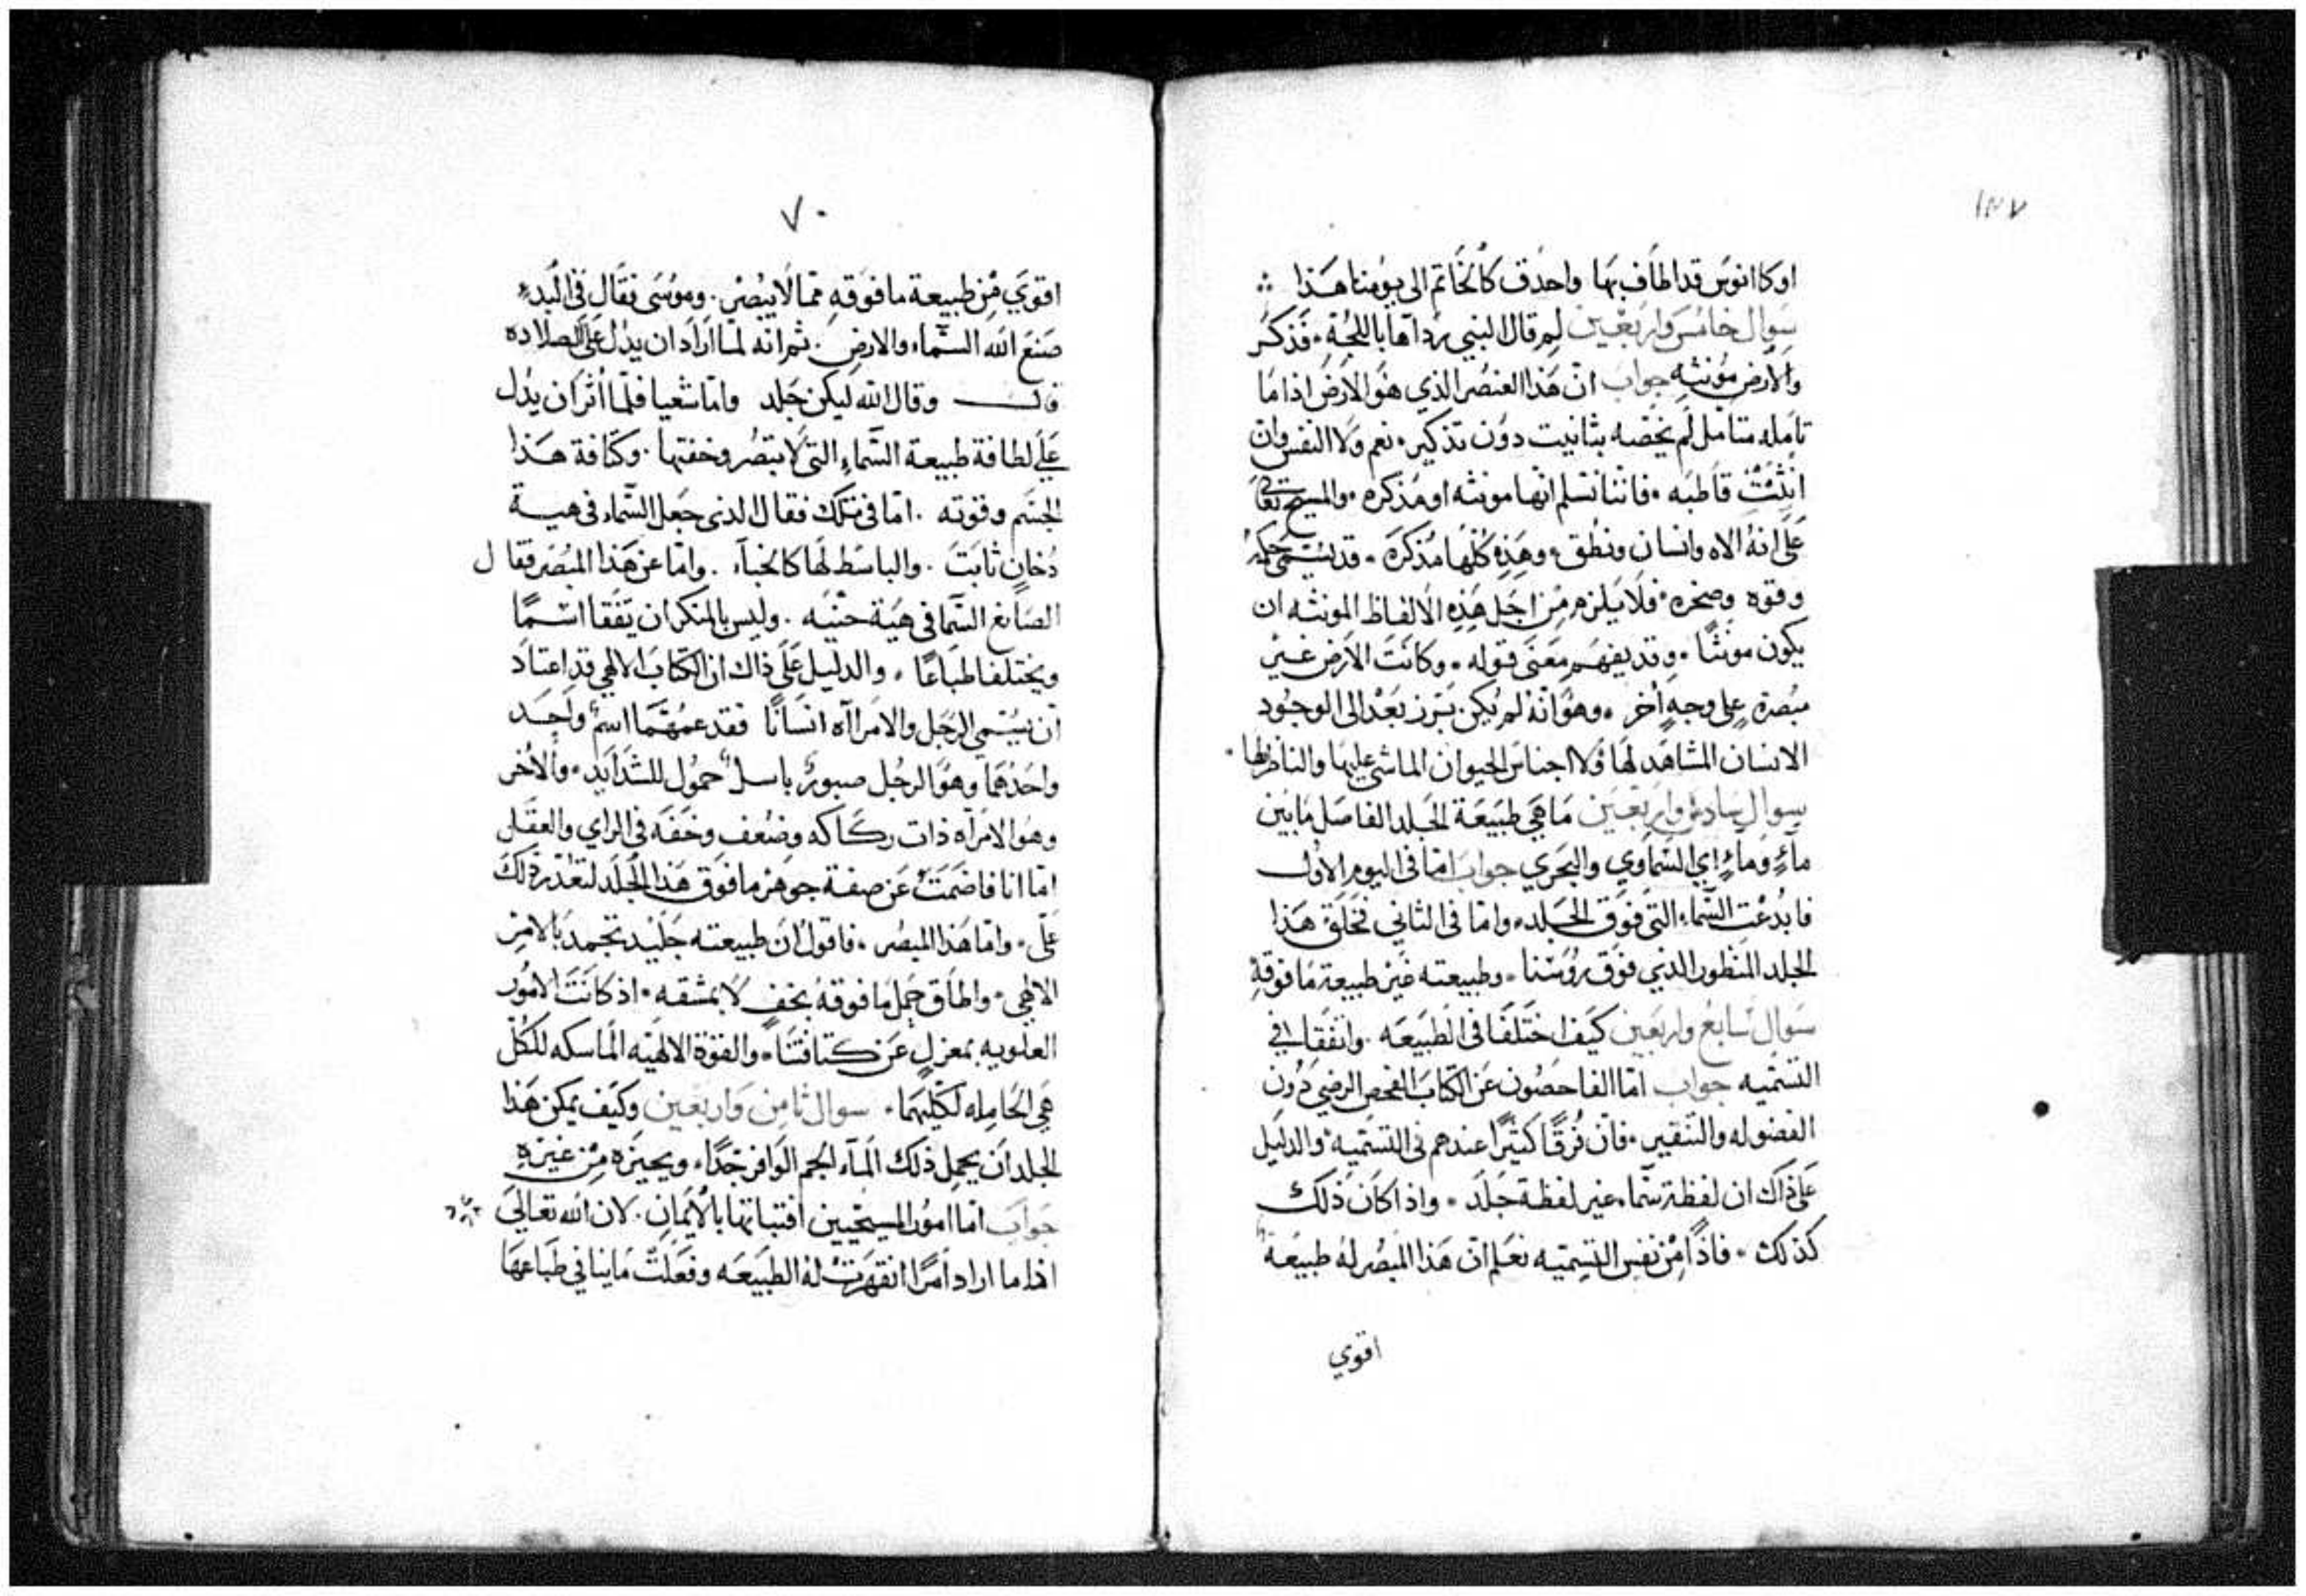 ١٨٧
اوكاانوس قد اطاف بها واحدق كالخاتم الى يومنا هذا
سوال خامس واربعين لم قال النبي رداها باللجة فذكر
والارض مونثه جواب ان هذا العنصر الذي هو الارض اذا ما
تامله متامل لم يخصه بتانيت دون تذكير نعم ولا النفس وان
انثت قاطبه فاننا نسلم انها مونثه او مذكره والمسيح تعالى
على انه الاه وانسان ونطق وهذه كلها مذكرة قد يسمى حكمه
وقوه وصخره فلا يلزم من اجل هذه الالفاظ المونثه ان
يكون مونثا وقد يفهم معنى قوله وكانت الارض غير
مبصرة على وجه اخر وهو انه لم يكن برز بعد الى الوجود
الانسان المشاهد لها ولا اجناس الحيوان الماشي عليها والناظر لها
سوال سادس واربعين ما هي طبيعة الجلد الفاصل ما بين
ماء وماء اي السماوي والبحري جواب اما في اليوم الاول
فابدعت السماء التي فوق الجلد واما في الثاني فخلق هذا
الجلد المنظور الذي فوق روسنا وطبيعته غير طبيعة ما فوقه
سوال سابع واربعين كيف اختلفا في الطبيعه واتفقا في
التسميه جواب اما الفاحصون عن الكتاب الفحص الرضي دون
الفضوله والتنقير فان فرقا كثيرا عندهم في التسميه والدليل
على ذاك ان لفظة سماء غير لفظة جلد واذا كان ذلك
كذلك فاذا من نفس التسميه نعلم ان هذا المبصر له طبيعة
اقوي
٧٠
اقوي من طبيعة ما فوقه مما لا يبصر وموسى فقال في البدء
صنع الله السماء والارض ثم انه لما اراد ان يدل على الصلاده
قال وقال الله ليكن جلد واما شعيا فلما اثر ان يدل
على لطافة طبيعة السماء التي لا تبصر وخفتها وكثافة هذا
الجسم وقوته اما في تلك فقال الذي جعل السماء في هية
دخان ثابت والباسط لها كالخباء واما عن هذا المبصر فقال
الصانع السما في هية حنيه وليس بالمنكر ان يتفقا اسما
ويختلفا طباعا والدليل على ذاك ان الكتاب الالهي قد اعتاد
ان يسمي الرجل والامراه انسانا فقد عمهما اسم واحد
واحدهما وهو الرجل صبور باسل حمول للشدايد والاخر
وهو الامراه ذات ركاكه وضعف وخفه في الراي والعقل
اما انا فاضمت عن صفة جوهر ما فوق هذا الجلد لتعذر ذلك
على واما هذا المبصر فاقول ان طبيعته جليد تجمد بالامر
الالهي واطاق حمل ما فوقه بخف لا بمشقه اذ كانت الامور
العلويه بمعزل عن كثافتنا والقوة الالهيه الماسكه للكل
هي الحامله لكليهما سوال ثامن واربعين وكيف يمكن هذا
الجلد ان يحمل ذلك الماء الجم الوافر جدا ويحيزه من غيره
جواب اما امور المسيحيين فثباتها بالايمان لان الله تعالى
اذا ما اراد امرا انقهرت له الطبيعه وفعلت ما ينافي طباعها